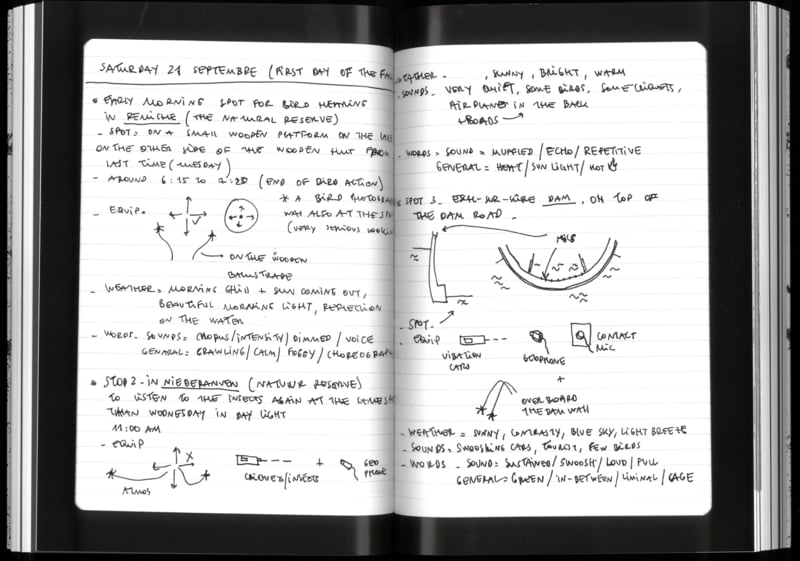 SATURDAY 21 SEPTEMBRE (FIRST DAY OF THE FA
• EARLY MORNING SPOT FOR BIRD HEARING
IN REMICHE (THE NATURAL RESERVE)
- SPOT: ON A SMALL WOODEN PLATFORM ON THE LAKE
ON THE OTHER SIDE OF THE WOODEN HUT FROM
LAST TIME (TUESDAY)
- AROUND 6:15 TO 7:20 (END OF BIRD ACTION)
* A BIRD PHOTOGRAP
- EQUIP.
WAS ALSO AT THE SPO
(VERY SERIOUS LOOKIN
ON THE WOODEN
BALUSTRADE
- WEATHER = MORNING CHILL + SUN COMING OUT,
BEAUTIFUL MORNING LIGHT, REFLECTION
ON THE WATER
- WORDS. SOUNDS = CHORUS/INTENSITY/DIMMED/VOICE
GENERAL = CRAWLING/CALM/FOGGY/CHOREOGRAPH
• STOP 2 - IN NIEDERANVEN (NATUUR RESERVE)
TO LISTEN TO THE INSECTS AGAIN AT THE SAME S
THAN WODNESDAY IN DAY LIGHT
11:00 AM
- EQUIP
X
ATMOS
CRICKETS/INSECTS
+
GEO
PHONE
EATHER - , SUNNY, BRIGHT, WARM
- SOUNDS - VERY QUIET, SOME BIRDS, SOME CRICKETS,
AIRPLANES IN THE BACK
+ ROADS
- WORDS = SOUND = MUFFLED/ECHO/REPETITIVE
GENERAL = HEAT/SUN LIGHT/HOT
SPOT 3 - ESCH-SUR-SURE DAM, ON TOP OF
THE DAM ROAD -
MICS
- SPOT
- EQUIP
VIBRATION
CARS
GEOPHONE
CONTACT
MIC
+
OVER BOARD
THE DAM WALL
- WEATHER = SUNNY, CONTRASTY, BLUE SKY, LIGHT BREEZE
- SOUNDS = SWOOSHING CARS, TOURIST, FEW BIRDS
- WORDS - SOUND = SUSTAINED/SWOOSH/LOUD/FULL
GENERAL = GREEN/IN-BETWEEN/LIMINAL/CAGE